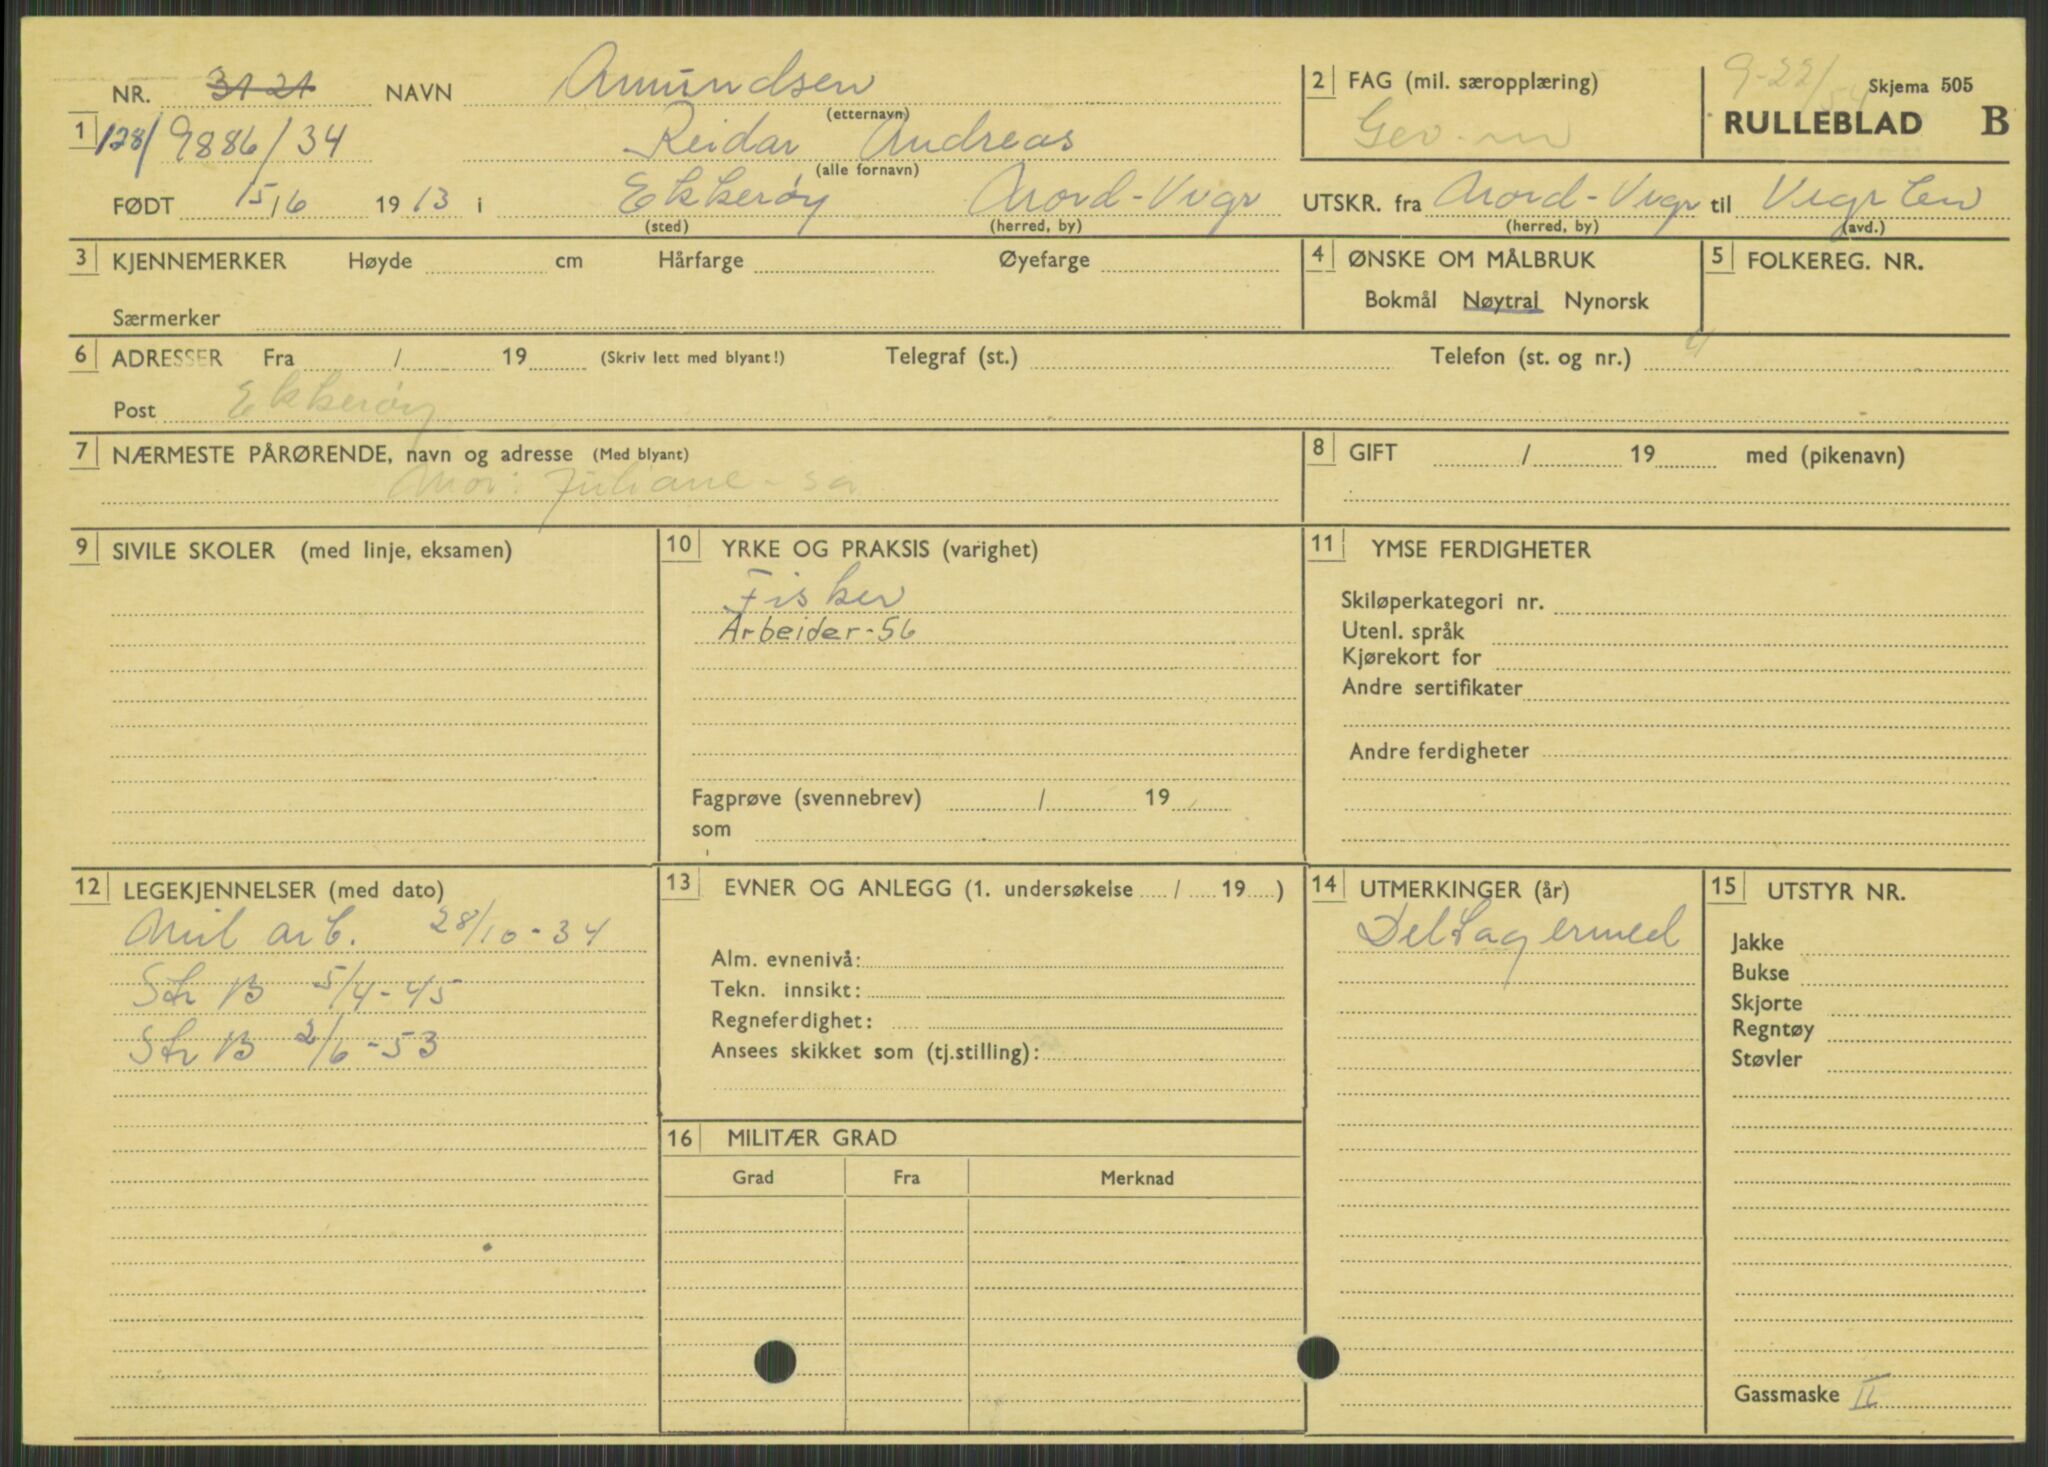 NR. 3121 NAVN Amundsen
(etternavn)
1 128/9886/34 Reidar Andreas
(alle fornavn)
FØDT 15/6 1913 i Ekkerøy Nord-Vvgr
(sted) (herred, by)
2 FAG (mil. særopplæring)
Gev.m
9-22/54 Skjema 505
RULLEBLAD B
UTSKR. fra Nord-Vvgr til
(herred, by) (avd.)
3 KJENNEMERKER Høyde cm Hårfarge Øyefarge
Særmerker
4 ØNSKE OM MÅLBRUK
Bokmål Nøytral Nynorsk
5 FOLKEREG. NR.
6 ADRESSER Fra / 19 (Skriv lett med blyant!) Telegraf (st.) Telefon (st. og nr.)
Post Ekkerøy
7 NÆRMESTE PÅRØRENDE, navn og adresse (Med blyant)
Mor: Juliane - sa
8 GIFT / 19 med (pikenavn)
9 SIVILE SKOLER (med linje, eksamen)
10 YRKE OG PRAKSIS (varighet)
Fisker
Arbeider-56
Fagprøve (svennebrev) / 19
som
11 YMSE FERDIGHETER
Skiløperkategori nr.
Utenl. språk
Kjørekort for
Andre sertifikater
Andre ferdigheter
12 LEGEKJENNELSER (med dato)
Mil arb. 28/10-34
Str B 5/4-45
Str B 2/6-53
13 EVNER OG ANLEGG (1. undersøkelse / 19 )
Alm. evnenivå:
Tekn. innsikt:
Regneferdighet:
Ansees skikket som (tj.stilling):
14 UTMERKINGER (år)
Deltagermed
15 UTSTYR NR.
Jakke
Bukse
Skjorte
Regntøy
Støvler
Gassmaske II
16 MILITÆR GRAD
Grad Fra Merknad